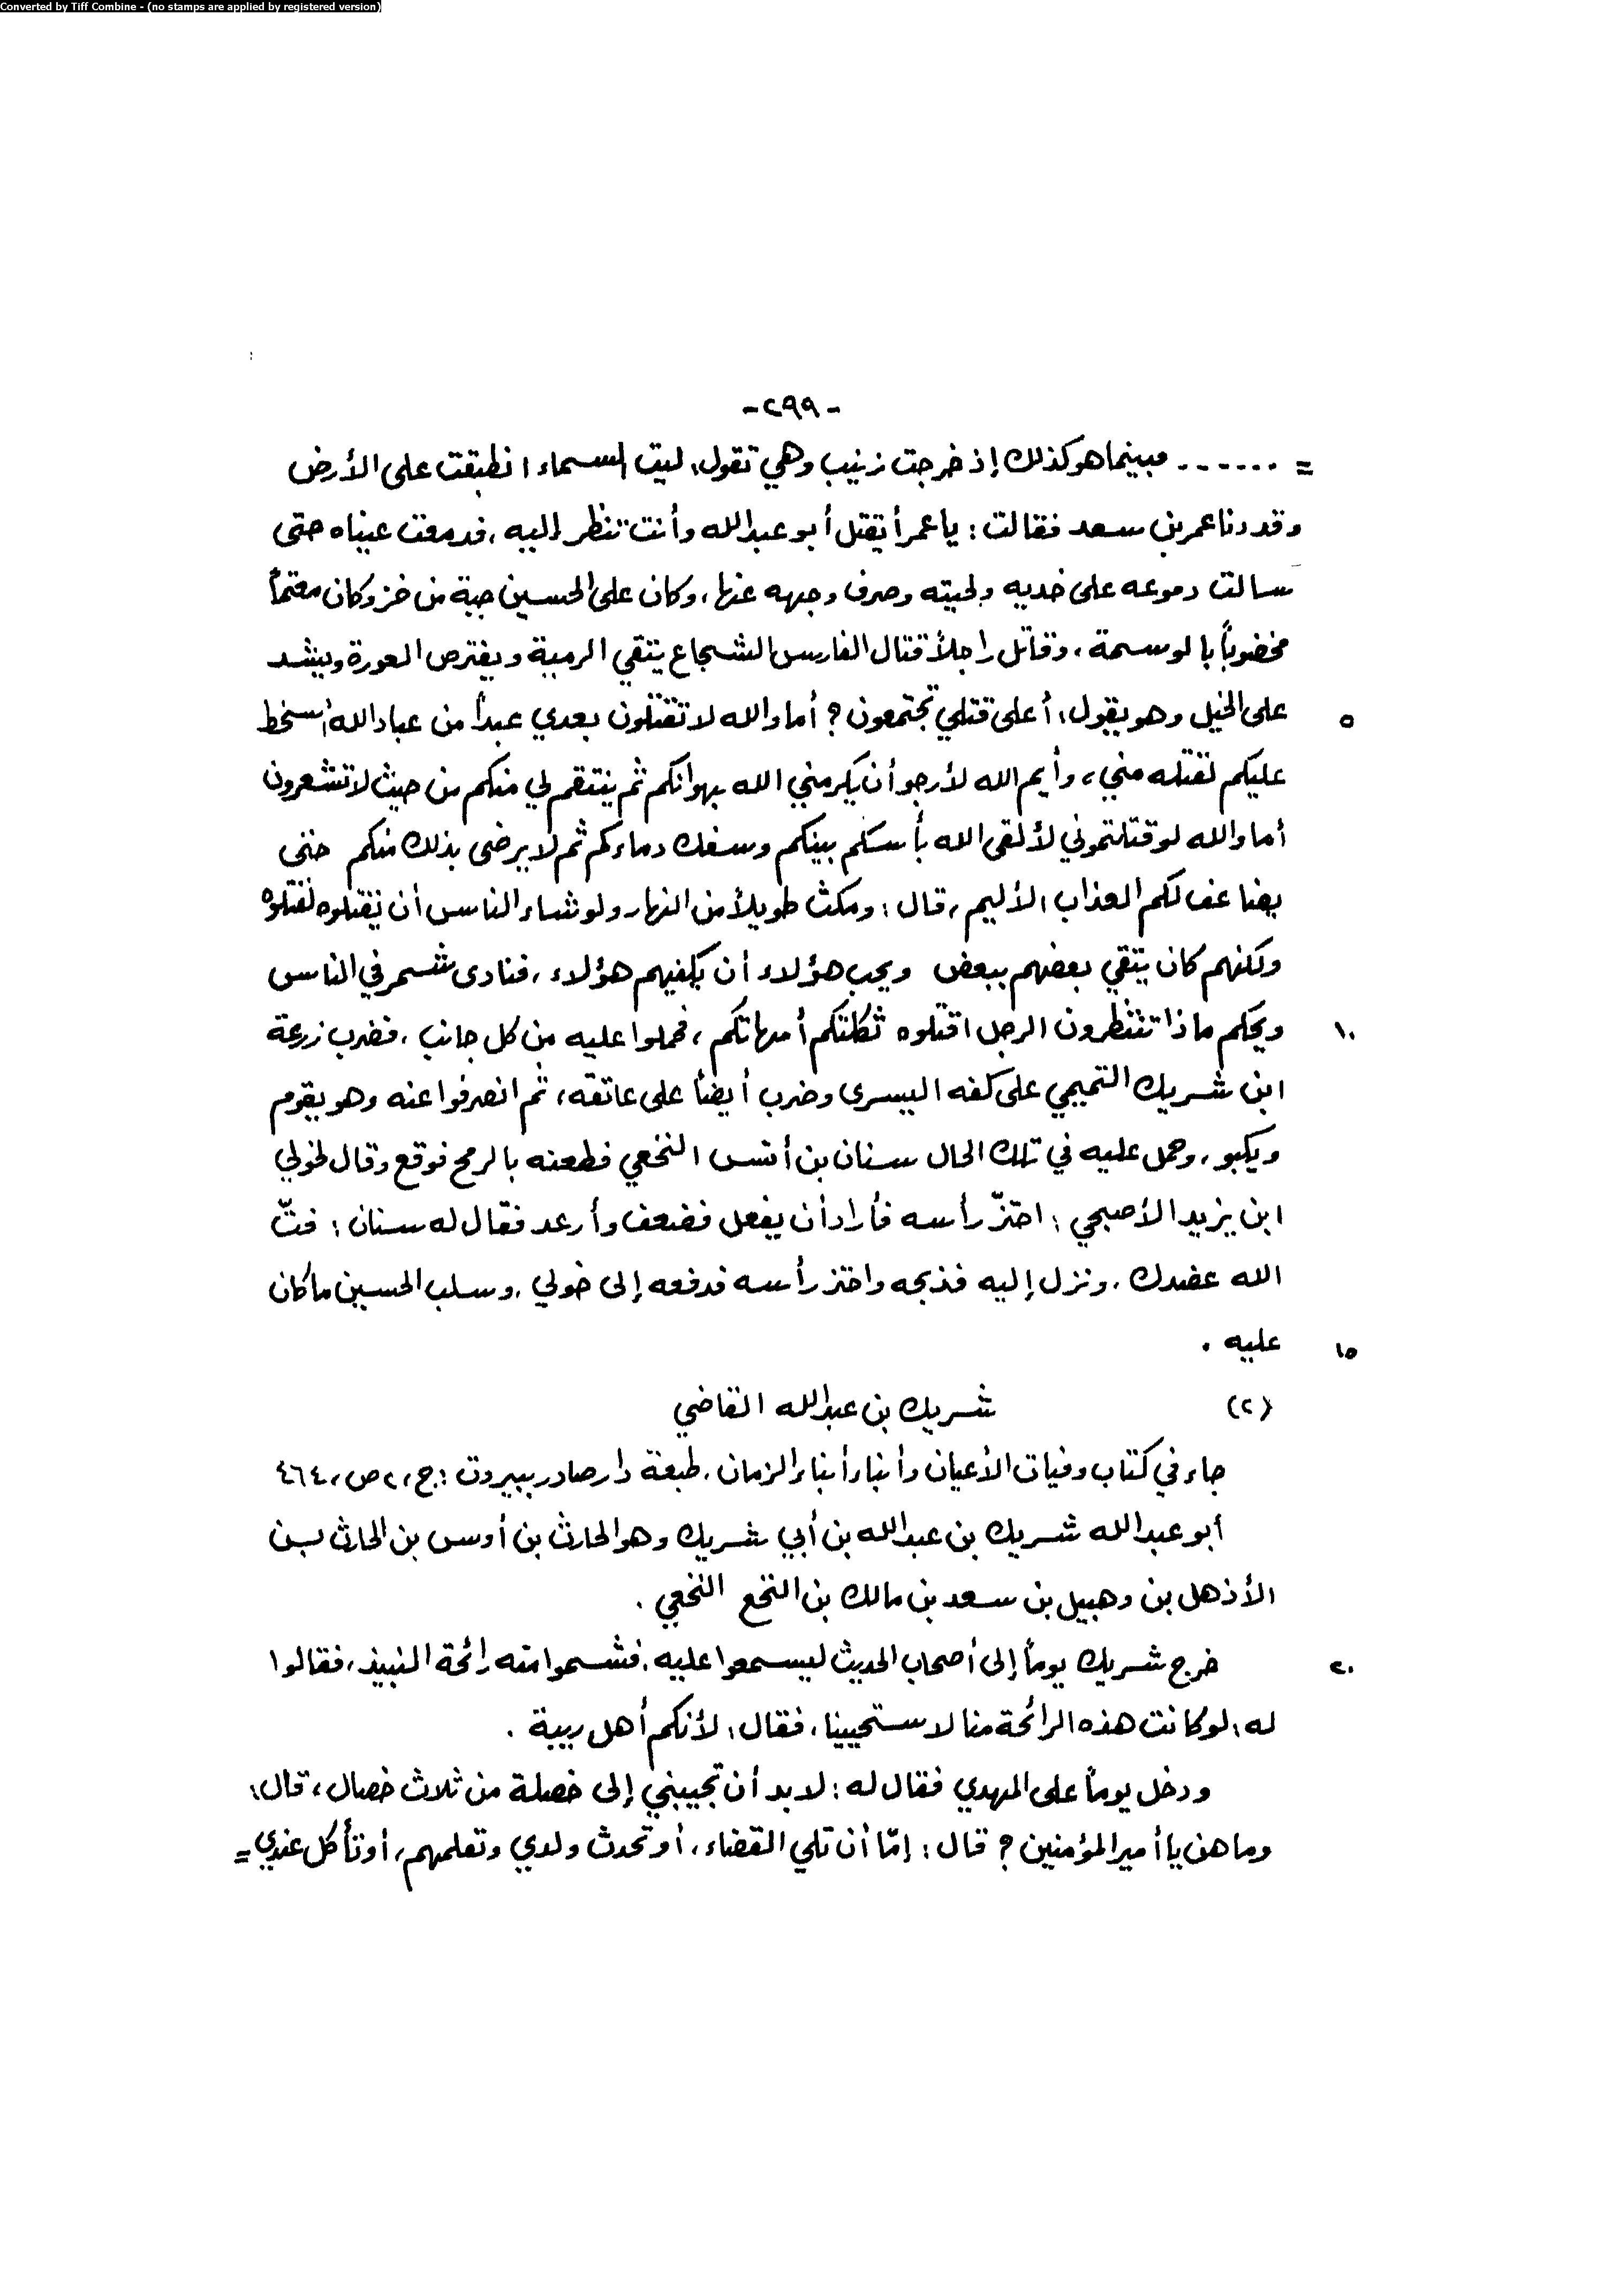 Converted by Tiff Combine - (no stamps are applied by registered version)
-٢٩٩-
= ...... فبينما هو كذلك إذ خرجت زينب وهي تقول: ليت السماء انطبقت على الأرض
وقد دنا عمر بن سعد فقالت: يا عمر أيقتل أبو عبدالله وأنت تنظر إليه، فدمعت عيناه حتى
سالت دموعه على خديه ولحيته وصرف وجهه عنها، وكان على الحسين جبة من خز وكان معتماً
مخضوباً بالوسمة، وقاتل راجلاً قتال الفارس الشجاع يتقي الرمية ويفترص العورة ويشد
٥ على الخيل وهو يقول: أعلى قتلي تجتمعون؟ أما والله لا تقتلون بعدي عبداً من عباد الله أسخط
عليكم لقتله مني، وأيم الله لأرجو أن يكرمني الله بهوانكم ثم ينتقم لي منكم من حيث لا تشعرون
أما والله لو قتلتموني لألقى الله بأسكم بينكم وسفك دماءكم ثم لا يرضى بذلك منكم حتى
يضاعف لكم العذاب الأليم، قال: ومكث طويلاً من النهار ولو شاء الناس أن يقتلوه لقتلوه
ولكنهم كان يتقي بعضهم ببعض ويحب هؤلاء أن يكفيهم هؤلاء، فنادى شمر في الناس
١٠ ويحكم ماذا تنتظرون الرجل اقتلوه ثكلتكم أمهاتكم، فحملوا عليه من كل جانب، فضرب زرعة
ابن شريك التميمي على كفه اليسرى وضرب أيضاً على عاتقه، ثم انصرفوا عنه وهو يقوم
ويكبو، وحمل عليه في تلك الحال سنان بن أنس النخعي فطعنه بالرمح فوقع وقال لخولي
ابن يزيد الأصبحي: احتزّ رأسه فأراد أن يفعل فضعف وأرعد فقال له سنان: فتّ
الله عضدك، ونزل إليه فذبحه واحتز رأسه فدفعه إلى خولي، وسلب الحسين ما كان
١٥ عليه.
(٢) شريك بن عبدالله القاضي
جاء في كتاب وفيات الأعيان وأنباء أبناء الزمان، طبعة دار صادر ببيروت: ج، ٢ ص، ٤٦٤
أبو عبدالله شريك بن عبدالله بن أبي شريك وهو الحارث بن أوس بن الحارث بن
الأذهل بن وهبيل بن سعد بن مالك بن النخع النخعي.
٢٠ خرج شريك يوماً إلى أصحاب الحديث ليسمعوا عليه، فشموا منه رائحة النبيذ، فقالوا
له: لو كانت هذه الرائحة منا لاستحيينا، فقال: لأنكم أهل ريبة.
ودخل يوماً على المهدي فقال له: لا بد أن تجيبني إلى خصلة من ثلاث خصال، قال:
وما هن يا أمير المؤمنين؟ قال: إمّا أن تلي القضاء، أو تحدث ولدي وتعلمهم، أو تأكل عندي =